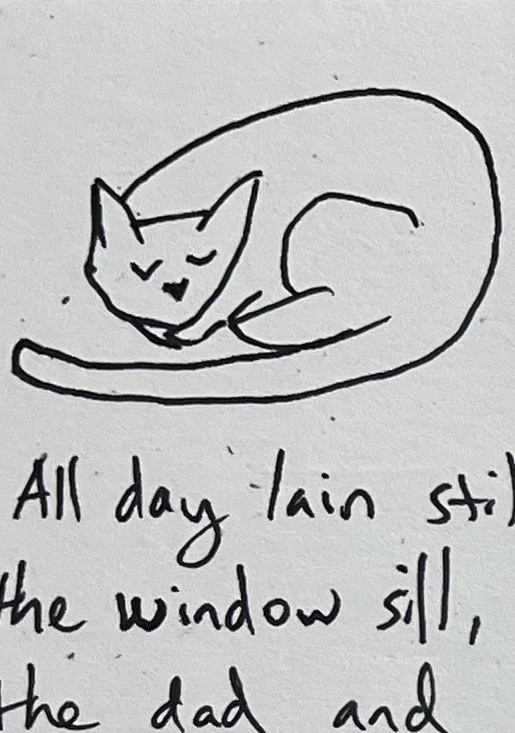 All day lain stil
the window sill,
the dad and